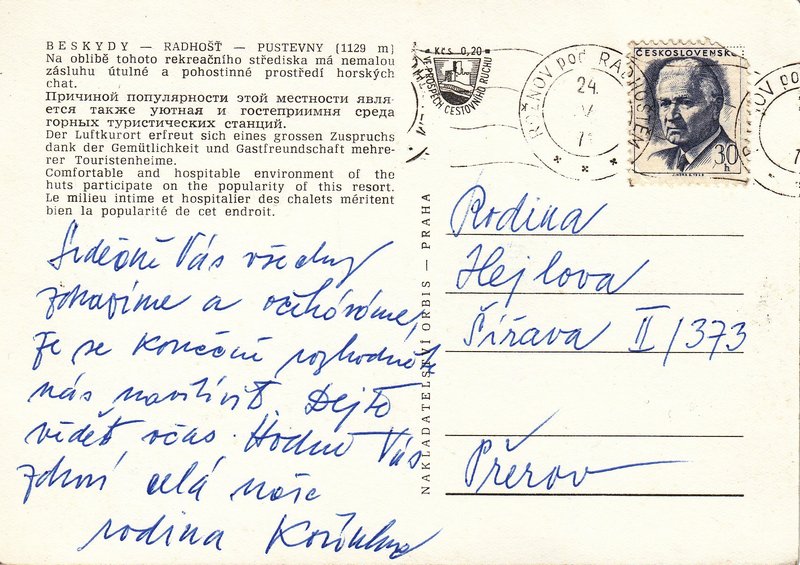 BESKYDY — RADHOŠŤ — PUSTEVNY (1129 m)
Na oblibě tohoto rekreačního střediska má nemalou
zásluhu útulné a pohostinné prostředí horských
chat.
Причиной популярности этой местности явля-
ется также уютная и гостеприимня среда
горных туристических станций.
Der Luftkurort erfreut sich eines grossen Zuspruchs
dank der Gemütlichkeit und Gastfreundschaft mehre-
rer Touristenheime.
Comfortable and hospitable environment of the
huts participate on the popularity of this resort.
Le milieu intime et hospitalier des chalets méritent
bien la popularité de cet endroit.
Srdečně Vás všechny
zdravíme a očekáváme,
že se konečně rozhodnete
nás navštívit. Dejte
vědět včas. Hodně Vás
zdraví celá naše
rodina
NAKLADATELSTVÍ ORBIS — PRAHA
Kčs 0,20
VE PROSPĚCH CESTOVNÍHO RUCHU
ROŽNOV pod RADHOŠTĚM
24.
ČESKOSLOVENSKO
30 h
Rodina
Hejlova
Šířava II/373
Přerov